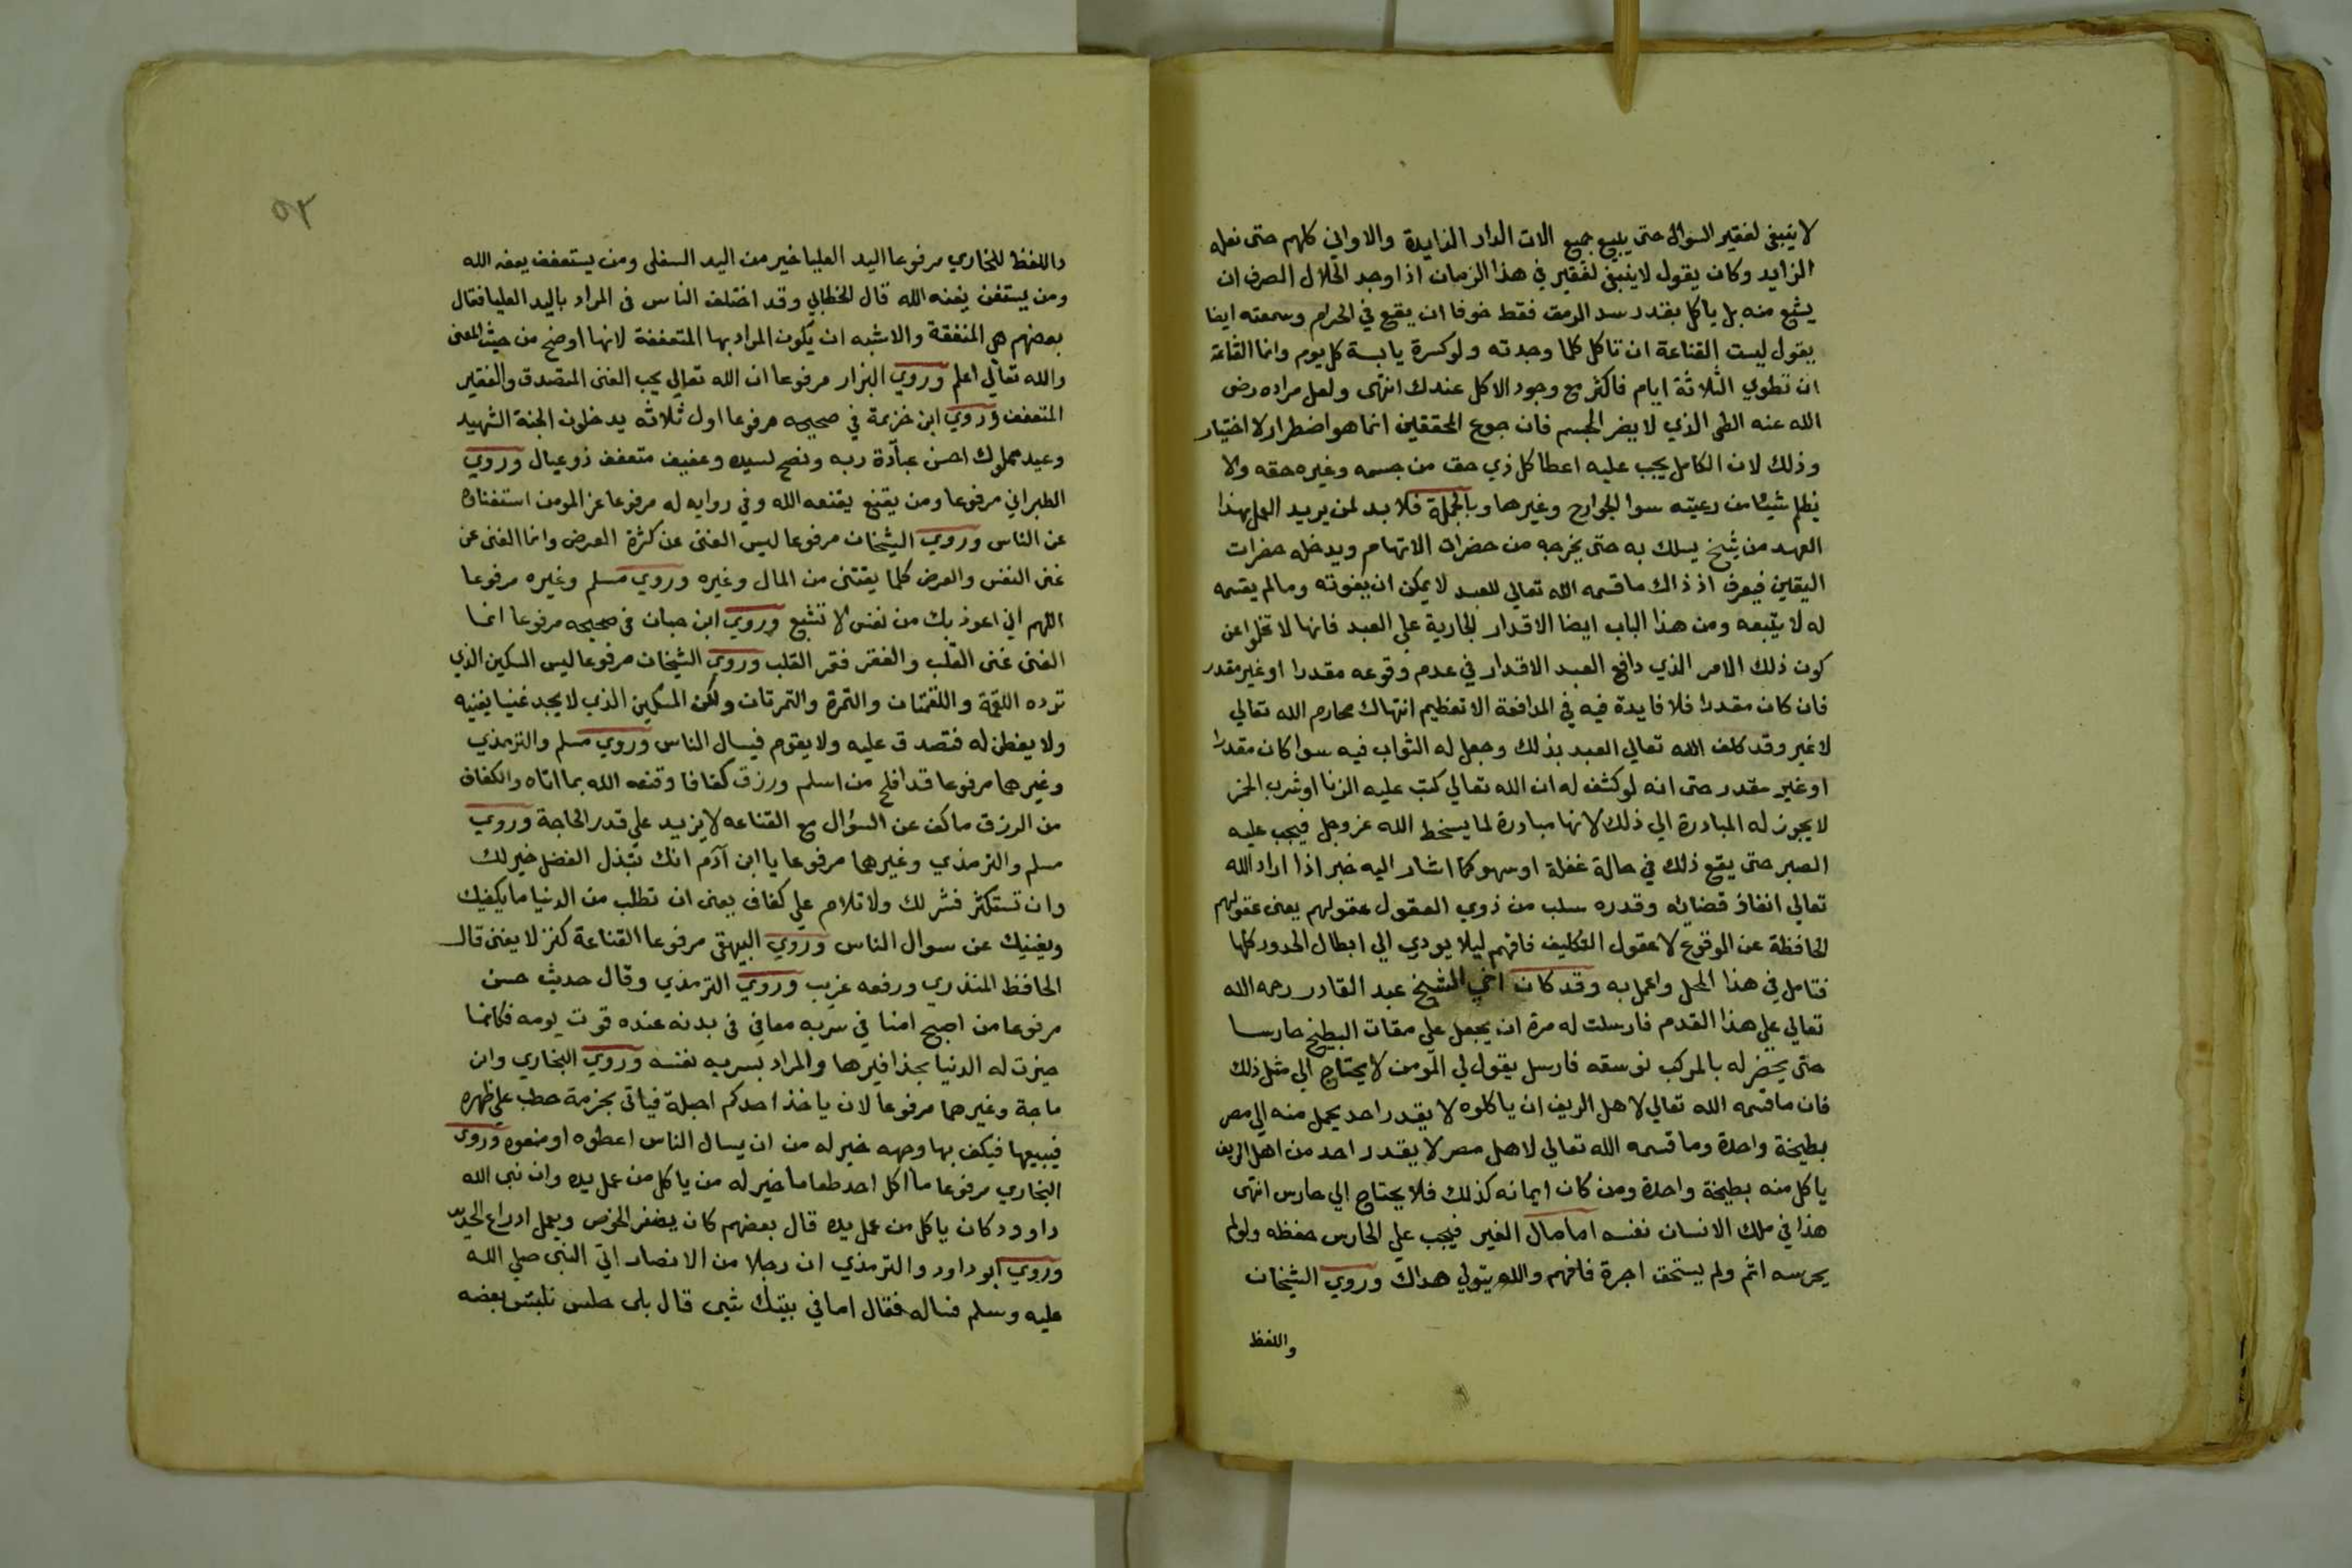 لا ينبغي لفقير السؤال حتى يبيع جميع الات الدار الزايدة والاواني كلهم حتى نعله
الزايد وكان يقول لا ينبغي لفقير في هذا الزمان اذا وجد الحلال الصرف ان
يشبع منه بل ياكل بقدر سد الرمق فقط خوفا ان يقع في الحرام وسمعته ايضا
يقول ليست القناعة ان تاكل كلما وجدته ولو كسرة يابسة كل يوم وانما القناعة
ان تطوي الثلاثة ايام فاكثر مع وجود الاكل عندك انتهى ولعل مراده رضى
الله عنه الطى الذي لا يضر الجسم فان جوع المحققين انما هو اضطرار لا اختيار
وذلك لان الكامل يجب عليه اعطا كل ذي حق من جسمه وغيره حقه ولا
يظلم شيئا من رعيته سوا الجوارح وغيرها وبالجملة فلا بد لمن يريد العمل بهذا
العهد من شيخ يسلك به حتى يخرجه من حضرات الاتهام ويدخله حضرات
اليقين فيعرف اذ ذاك ما قسمه الله تعالي للعبد لا يمكن ان يفوته وما لم يقسمه
له لا يتبعه ومن هذا الباب ايضا الاقدار الجارية علي العبد فانها لا تخلوا عن
كون ذلك الامر الذي دافع العبد الاقدار في عدم وقوعه مقدرا او غير مقدر
فان كان مقدرا فلا فايدة فيه في المدافعة الا تعظيم انتهاك محارم الله تعالي
لا غير وقد كلف الله تعالي العبد بذلك وجعل له الثواب فيه سوا كان مقدرا
او غير مقدر حتى انه لو كشف له ان الله تعالي كتب عليه الزنا او شرب الخمر
لا يجوز له المبادرة الي ذلك لانها مبادرة لما يسخط الله عز وجل فيجب عليه
الصبر حتى يقع ذلك في حالة غفلة او سهو كما اشار اليه خبر اذا اراد الله
تعالي انفاذ قضائه وقدره سلب من ذوي العقول عقولهم يعنى عقولهم
الحافظة عن الوقوع لا عقول التكليف فافهم ليلا يودي الي ابطال الحدود كلها
فتامل في هذا المحل واعمل به وقد كان اخي الشيخ عبد القادر رحمه الله
تعالي علي هذا القدم فارسلت له مرة ان يجعل علي مقات البطيخ حارسا
حتى يحضر له بالمركب نوسقه فارسل يقول لي المومن لا يحتاج الي مثل ذلك
فان ما قسمه الله تعالي لاهل الريف ان ياكلوه لا يقدر احد يحمل منه الي مصر
بطيخة واحدة وما قسمه الله تعالي لاهل مصر لا يقدر احد من اهل الريف
ياكل منه بطيخة واحدة ومن كان ايمانه كذلك فلا يحتاج الي حارس انتهى
هذا في ملك الانسان نفسه اما مال الغير فيجب علي الحارس حفظه ولو لم
يحرسه اثم ولم يستحق اجرة فافهم والله يتولي هداك وروي الشيخان
واللفظ
٥٣
واللفظ للبخاري مرفوعا اليد العليا خير من اليد السفلى ومن يستعفف يعفه الله
ومن يستغن يغنه الله قال الخطابي وقد اختلف الناس في المراد باليد العليا فقال
بعضهم هى المنفقة والاشبه ان يكون المراد بها المتعففة لانها اوضح من حيث المعنى
والله تعالي اعلم وروي البزار مرفوعا ان الله تعالي يحب الغنى المتصدق والفقير
المتعفف وروي ابن خزيمة في صحيحه مرفوعا اول ثلاثه يدخلون الجنة الشهيد
وعبد مملوك احسن عبادة ربه ونصح لسيده وعفيف متعفف ذو عيال وروي
الطبراني مرفوعا ومن يقنع يقنعه الله وفي روايه له مرفوعا عز المومن استغناوه
عن الناس وروي الشيخان مرفوعا ليس الغنى عن كثرة العرض وانما الغنى عن
غنى النفس والعرض كلما يقتنى من المال وغيره وروي مسلم وغيره مرفوعا
اللهم اني اعوذ بك من نفس لا تشبع وروي ابن حبان في صحيحه مرفوعا انما
الغنى غنى القلب والفقر فقر القلب وروي الشيخان مرفوعا ليس المسكين الذي
ترده اللقمة واللقمتان والتمرة والتمرتان ولكن المسكين الذي لا يجد غنيا يغنيه
ولا يفطن له فتصدق عليه ولا يقوم فيسال الناس وروي مسلم والترمذي
وغيرهما مرفوعا قد افلح من اسلم ورزق كفافا وقنعه الله بما اتاه والكفاف
من الرزق ما كف عن السؤال مع القناعه لا يزيد علي قدر الحاجة وروي
مسلم والترمذي وغيرهما مرفوعا يا ابن آدم انك تبذل الفضل خير لك
وان تستكثر فشر لك ولا تلام علي كفاف يعنى ان تطلب من الدنيا ما يكفيك
ويغنيك عن سوال الناس وروي البيهقى مرفوعا القناعة كنز لا يفنى قال
الحافظ المنذري ورفعه غريب وروي الترمذي وقال حديث حسن
مرفوعا من اصبح امنا في سربه معافي في بدنه عنده قوت يومه فكانما
حيزت له الدنيا بحذافيرها والمراد بسربه نفسه وروي البخاري وابن
ماجة وغيرهما مرفوعا لان ياخذ احدكم احبلة فياتى بحزمة حطب علي ظهره
فيبيعها فيكف بها وجهه خير له من ان يسال الناس اعطوه او منعوه وروى
البخاري مرفوعا ما اكل احد طعاما خير له من ياكل من عمل يده وان نبى الله
داوود كان ياكل من عمل يده قال بعضهم كان يضفر الخوص ويعمل ادراع الحديد
وروي ابو داود والترمذي ان رجلا من الانصار اتي النبى صلي الله
عليه وسلم فساله فقال اما في بيتك شى قال بلى حلس نلبس بعضه